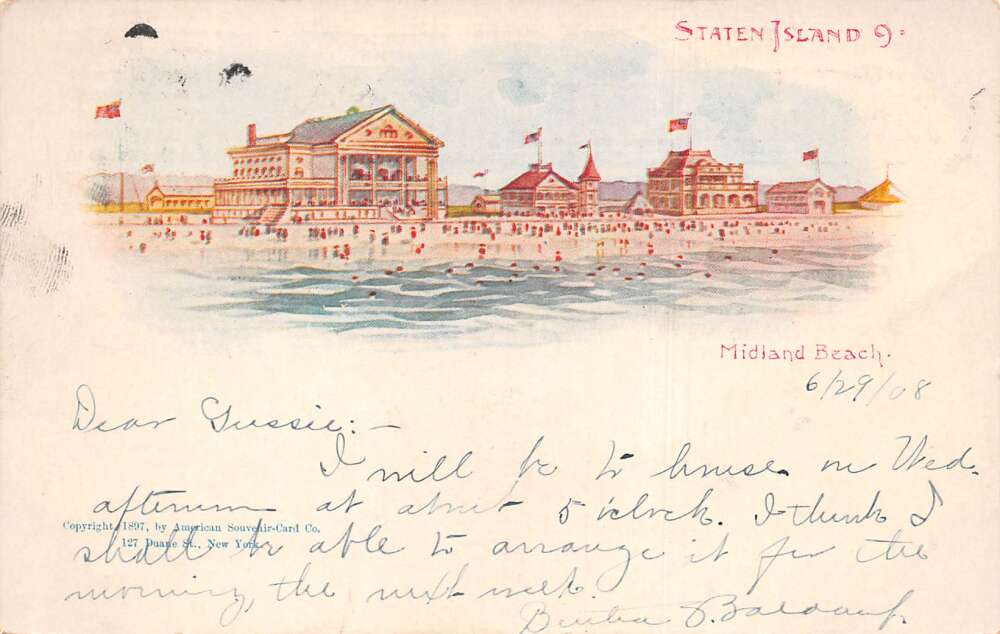 STATEN ISLAND 9=
Midland Beach.
6/29/08
Dear Gussie:-
I will be to house on Wed.
afternoon at about 5 o'clock. I think I
Copyright, 1897, by American Souvenir-Card Co.
127 Duane St., New York.
shall be able to arrange it for the
morning, the next week.